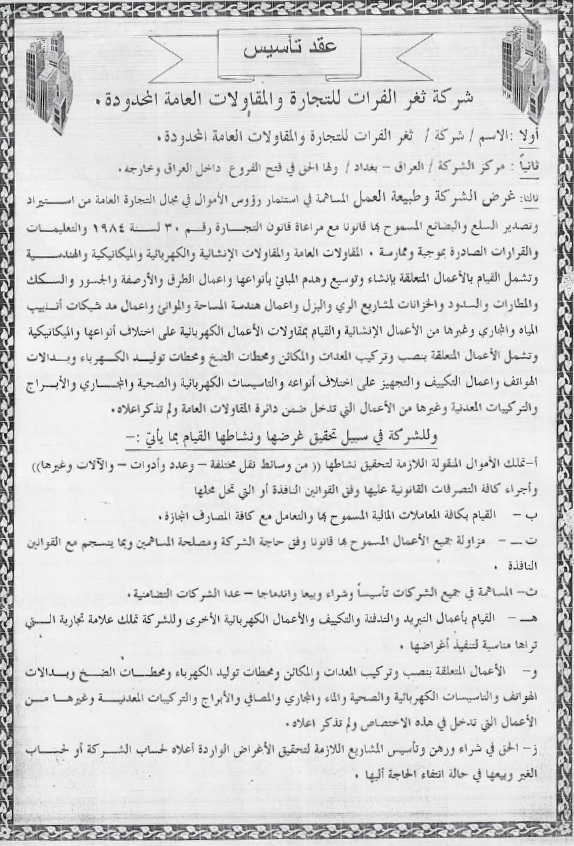 عقد تأسيس
شركة ثغر الفرات للتجارة والمقاولات العامة المحدودة .
أولا :الاسم / شركة / ثغر الفرات للتجارة والمقاولات العامة المحدودة .
ثانياً : مركز الشركة / العراق – بغداد / ولها الحق في فتح الفروع داخل العراق وخارجه .
ثالثا: غرض الشركة وطبيعة العمل المساهمة في استثمار رؤوس الأموال في مجال التجارة العامة من استيراد
وتصدير السلع والبضائع المسموح بها قانونا مع مراعاة قانون التجارة رقم ٣٠ لسنة ١٩٨٤ والتعليمات
والقرارات الصادرة بموجبة وممارسة . المقاولات العامة والمقاولات الإنشائية والكهربائية والميكانيكية والهندسية
وتشمل القيام بالأعمال المتعلقة بإنشاء وتوسيع وهدم المباني بأنواعها واعمال الطرق والأرصفة والجسور والسكك
والمطارات والسدود والخزانات لمشاريع الري والبزل واعمال هندسة المساحة والموانئ واعمال مد شبكات أنابيب
المياه والمجاري وغيرها من الأعمال الإنشائية والقيام بمقاولات الأعمال الكهربائية على اختلاف أنواعها والميكانيكية
وتشمل الأعمال المتعلقة بنصب وتركيب المعدات والمكائن ومحطات الضخ ومحطات توليد الكهرباء وبدالات
الهواتف واعمال التكييف والتجهيز على اختلاف أنواعه والتاسيسات الكهربائية والصحية والمجاري والأبراج
والتركيبات المعدنية وغيرها من الأعمال التي تدخل ضمن دائرة المقاولات العامة ولم تذكر اعلاه.
وللشركة في سبيل تحقيق غرضها ونشاطها القيام بما يأتي :–
أ–تملك الأموال المنقولة اللازمة لتحقيق نشاطها (( من وسائط نقل مختلفة – وعدد وأدوات – والآلات وغيرها))
وأجراء كافة التصرفات القانونية عليها وفق القوانين النافذة أو التي تحل محلها
ب – القيام بكافة المعاملات المالية المسموح بها والتعامل مع كافة المصارف المجازة .
ت – مزاولة جميع الأعمال المسموح بها قانونا وفق حاجة الشركة ومصلحة المساهمين وبما ينسجم مع القوانين
النافذة .
ث– المساهمة في جميع الشركات تأسيساً وشراء وبيعا واندماجا – عدا الشركات التضامنية .
هـ – القيام بأعمال التبريد والتدفئة والتكييف والأعمال الكهربائية الأخرى وللشركة تملك علامة تجارية التي
تراها مناسبة لتنفيذ أغراضها .
و– الأعمال المتعلقة بنصب وتركيب المعدات والمكائن ومحطات توليد الكهرباء ومحطات الضخ وبدالات
الهواتف والتاسيسات الكهربائية والصحية والماء والمجاري والمصافي والأبراج والتركيبات المعدنية وغيرها من
الأعمال التي تدخل في هذه الاختصاص ولم تذكر اعلاه .
ز– الحق في شراء ورهن وتأسيس المشاريع اللازمة لتحقيق الأغراض الواردة أعلاه لحساب الشركة أو لحساب
الغير وبيعها في حالة انتفاء الحاجة أليها .